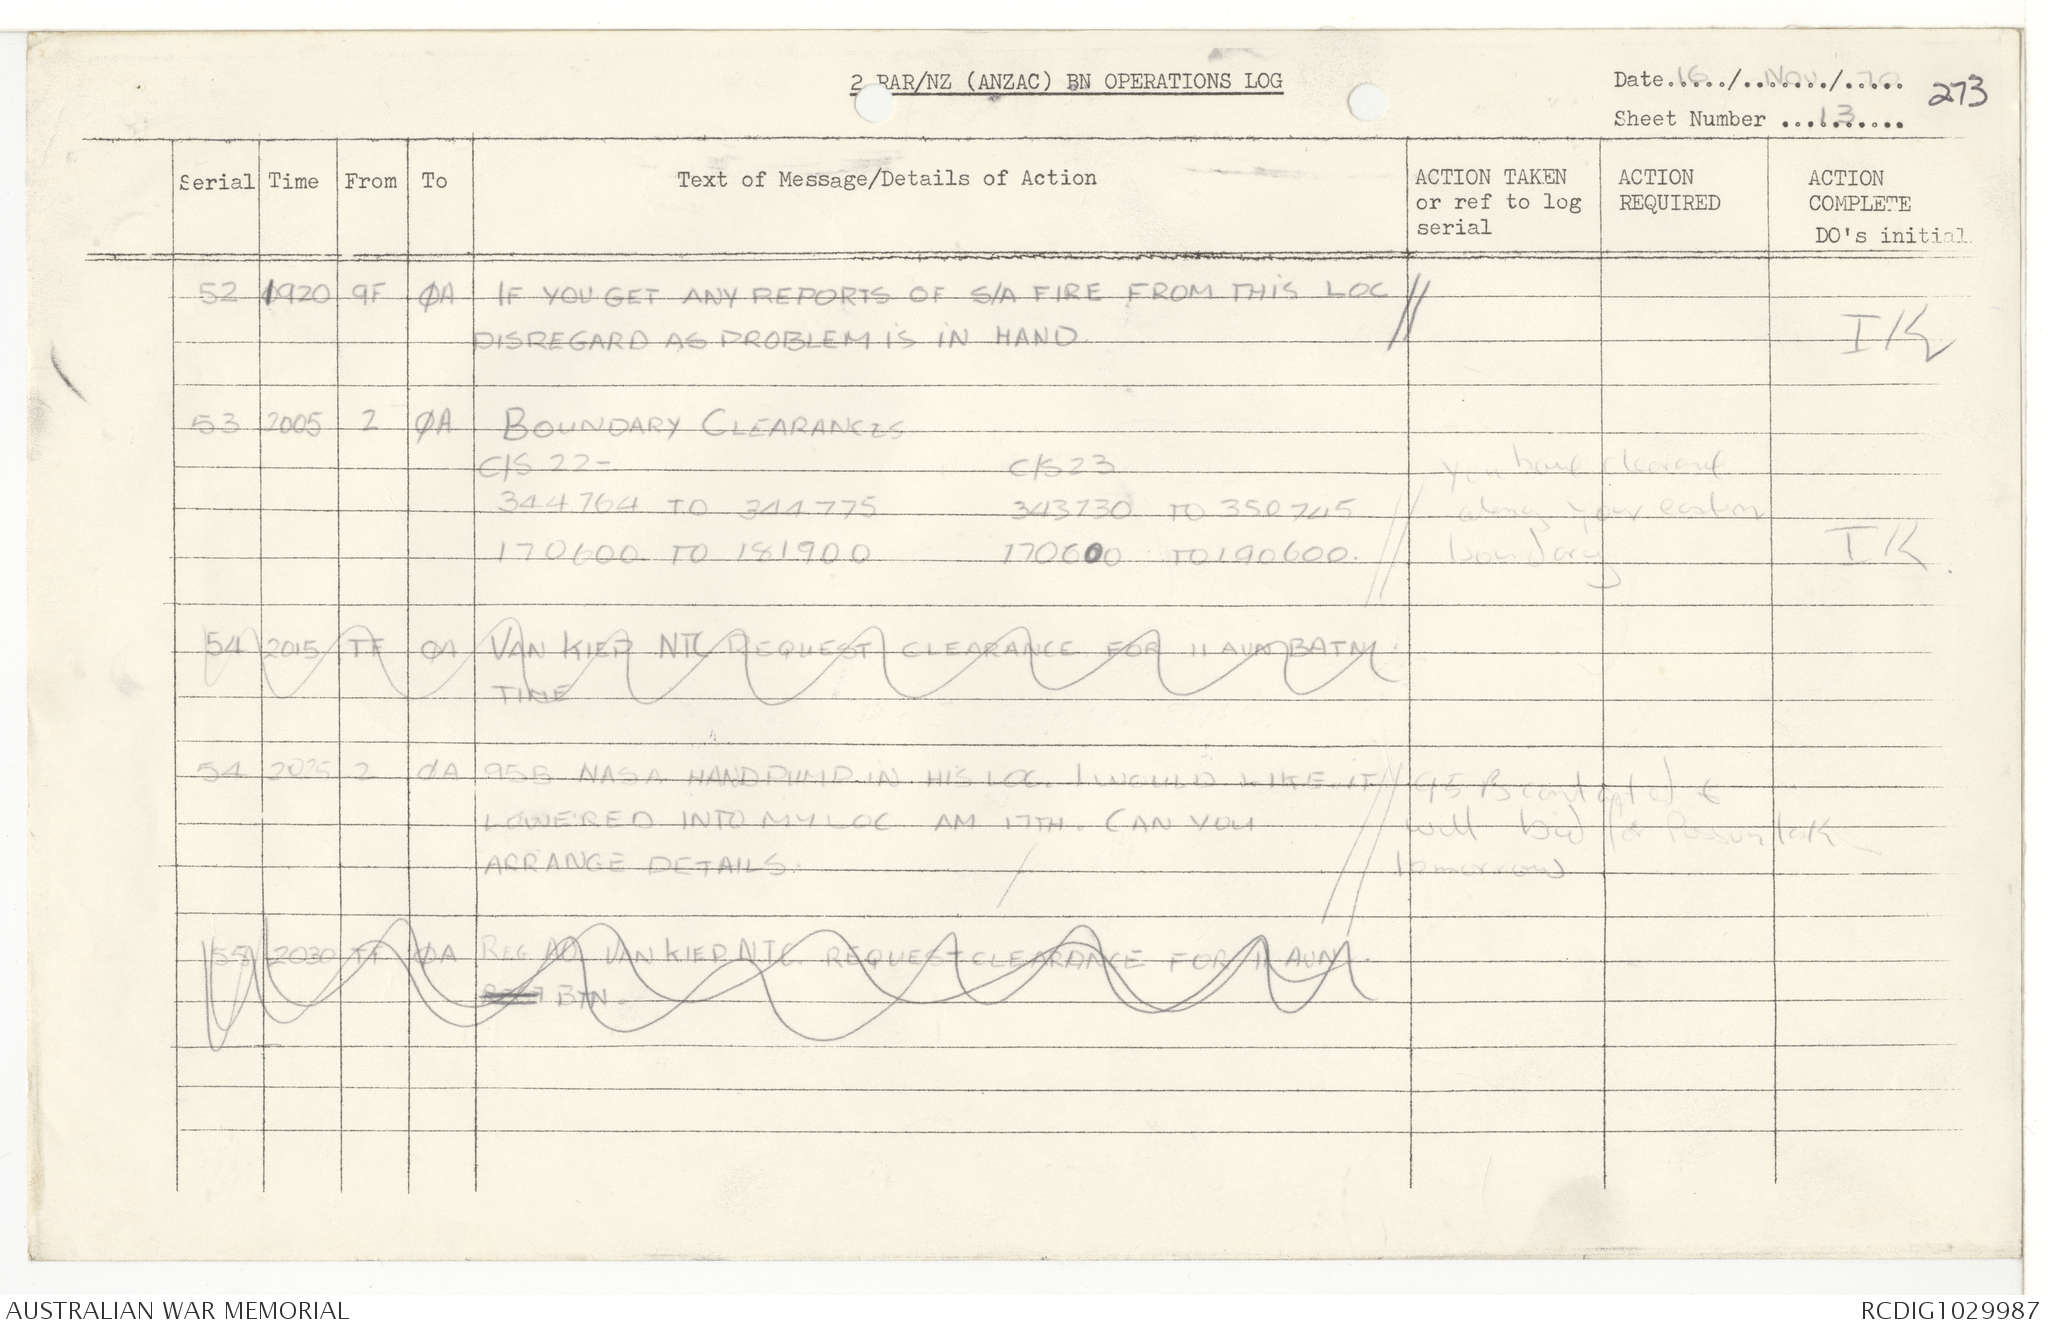 2 RAR/NZ (ANZAC) BN OPERATIONS LOG
Date 16 / Nov / 70
273
Sheet Number 13
Serial Time From To Text of Message/Details of Action ACTION TAKEN or ref to log serial ACTION REQUIRED ACTION COMPLETE DO's initial
52 1920 9F ØA IF YOU GET ANY REPORTS OF S/A FIRE FROM THIS LOC
DISREGARD AS PROBLEM IS IN HAND. IK
53 2005 2 ØA BOUNDARY CLEARANCES
C/S 22- C/S 23 you have clearance
344764 TO 344775 343730 TO 350745 along your eastern
170600 TO 181900 170600 TO 190600. boundary IK
54 2015 TF ØA VAN KIEP NTC REQUEST CLEARANCE FOR 11 AVN BATN
TIME
54 2025 2 ØA 95B NASA HANDPUMP IN HIS LOC. I WOULD LIKE IT 95 B contacted &
LOWERED INTO MY LOC AM 17TH. CAN YOU will bid for Possum task
ARRANGE DETAILS. tomorrow
55 2030 TF ØA REG AO VAN KIEP NTC. REQUEST CLEARANCE FOR 11 AVN.
BTN.
AUSTRALIAN WAR MEMORIAL
RCDIG1029987